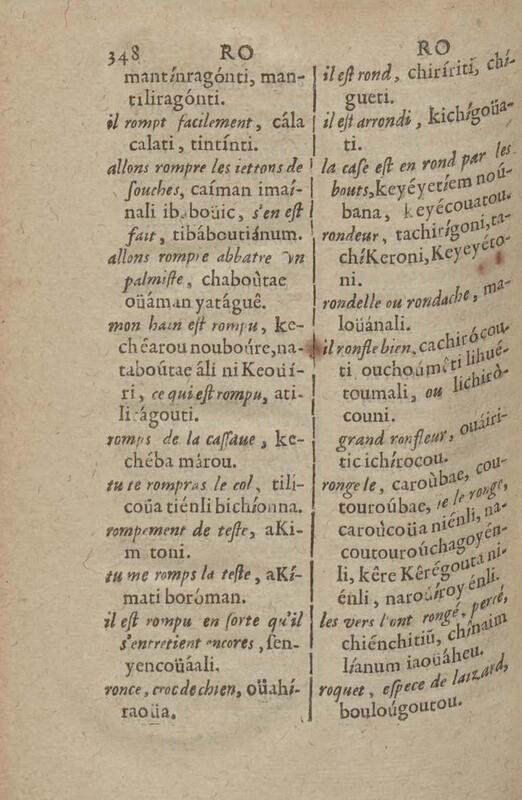 348 RO
mantínragónti, man-
tiliragónti.
il rompt facilement, cála
calati, tintínti.
allons rompre les iettons de
souches, caíman imaí-
nali boüic, s'en est
fait, tibáboutiánum.
allons rompre abbatre vn
palmiste, chaboùtae
oüáman yatáguê.
mon hain est rompu, ke-
chéarou nouboúre, na-
taboútae áli ni Keoüí-
ri, ce qui est rompu, ati-
lirágouti.
romps de la cassaue, ke-
chéba márou.
tu te rompras le col, tili-
coüa tiénli bichíonna.
rompement de teste, aKi-
m toni.
tu me romps la teste, aKí-
mati boróman.
il est rompu en sorte qu'il
s'entretient encores, sen-
yencoüáali.
ronce, croc de chien, oüahí-
raoüa.
RO
il est rond, chiríriti, chí-
gueti.
il est arrondi, kichígoüa-
ti.
la case est en rond par les
bouts, keyéyetíem noú-
bana, keyécouatou.
rondeur, tachirígoni, ta-
chíKeroni, Keyeyéto-
ni.
rondelle ou rondache, ma-
loüánali.
il ronfle bien, cachirócou-
ti ouchoúmêti lihué-
toumali, ou lichirò-
couni.
grand ronfleur, ouáiri-
tic ichírocou.
ronge le, caroùbae, cou-
touroúbae, ie le ronge,
caroùcoüa niénli, na-
coutouroúchagoyén-
li, kêre Kêrégouta ni-
énli, naroúíroyénli.
les vers l'ont rongé, percé,
chiénchitiü, chínaim
líanum iaoüáheu.
roquet, espece de laizard,
boulougoutou.